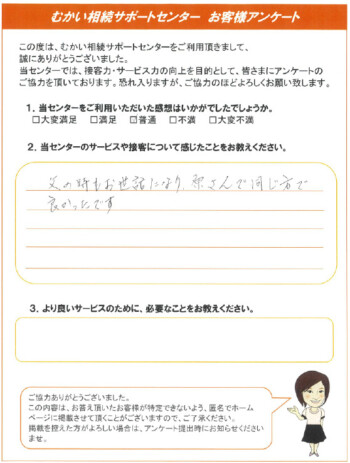 むかい相続サポートセンター お客様アンケート
この度は、むかい相続サポートセンターをご利用頂きまして、
誠にありがとうございました。
当センターでは、接客力・サービス力の向上を目的として、皆さまにアンケートの
ご協力を頂いております。恐れ入りますが、ご協力のほどよろしくお願い致します。
1．当センターをご利用いただいた感想はいかがでしたでしょうか。
□大変満足 □満足 ☑普通 □不満 □大変不満
2．当センターのサービスや接客について感じたことをお教えください。
父の時もお世話になり、 さんで同じ方で
良かったです
3．より良いサービスのために、必要なことをお教えください。
ご協力ありがとうございました。
この内容は、お答え頂いたお客様が特定できないよう、匿名でホーム
ページに掲載させて頂くことがございますので、ご了承ください。
掲載を控えた方がよろしい場合は、アンケート提出時にお知らせください
ませ。